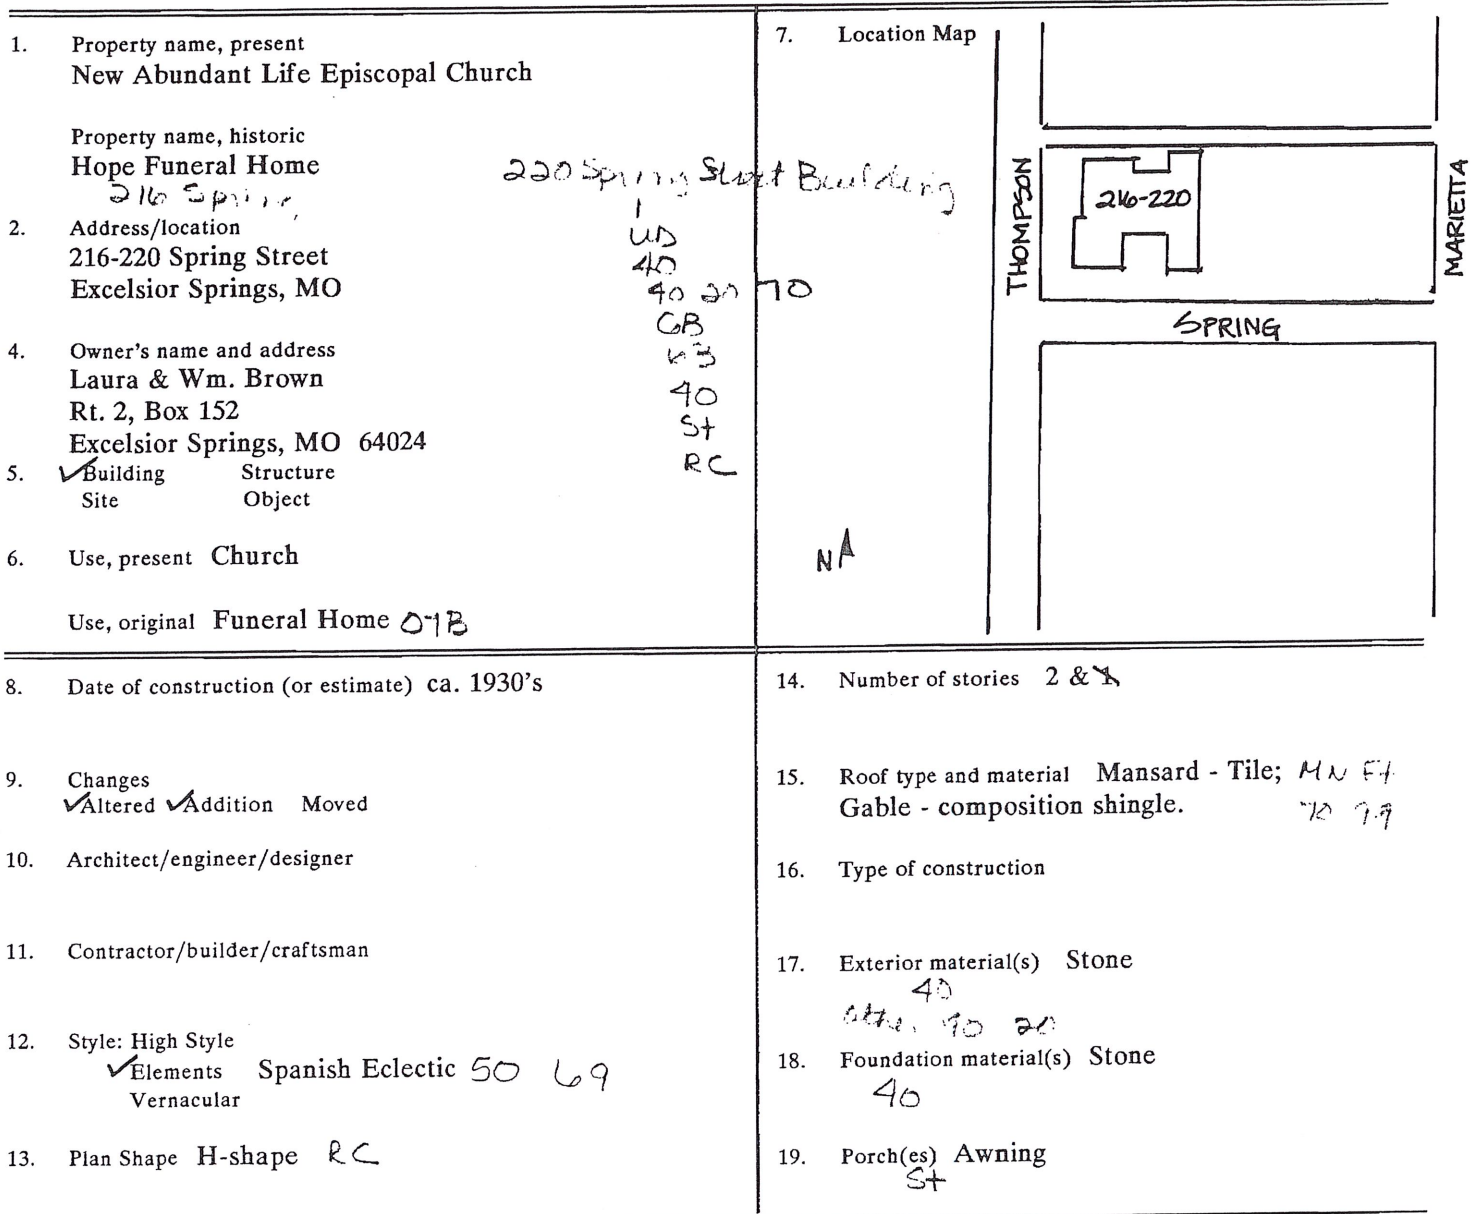 1. Property name, present
New Abundant Life Episcopal Church
Property name, historic
Hope Funeral Home
216 Spring
220 Spring Street Building
2. Address/location
216-220 Spring Street
Excelsior Springs, MO
UD
40
40 20 70
GB
40
St
RC
4. Owner's name and address
Laura & Wm. Brown
Rt. 2, Box 152
Excelsior Springs, MO 64024
5. ✓Building Structure
Site Object
6. Use, present Church
Use, original Funeral Home 07B
7. Location Map
THOMPSON
216-220
MARIETTA
SPRING
N
8. Date of construction (or estimate) ca. 1930's
9. Changes
✓Altered ✓Addition Moved
10. Architect/engineer/designer
11. Contractor/builder/craftsman
12. Style: High Style
✓Elements Spanish Eclectic 50 69
Vernacular
13. Plan Shape H-shape RC
14. Number of stories 2 & 1
15. Roof type and material Mansard - Tile; MN
Gable - composition shingle.
16. Type of construction
17. Exterior material(s) Stone
40
20
18. Foundation material(s) Stone
40
19. Porch(es) Awning
St